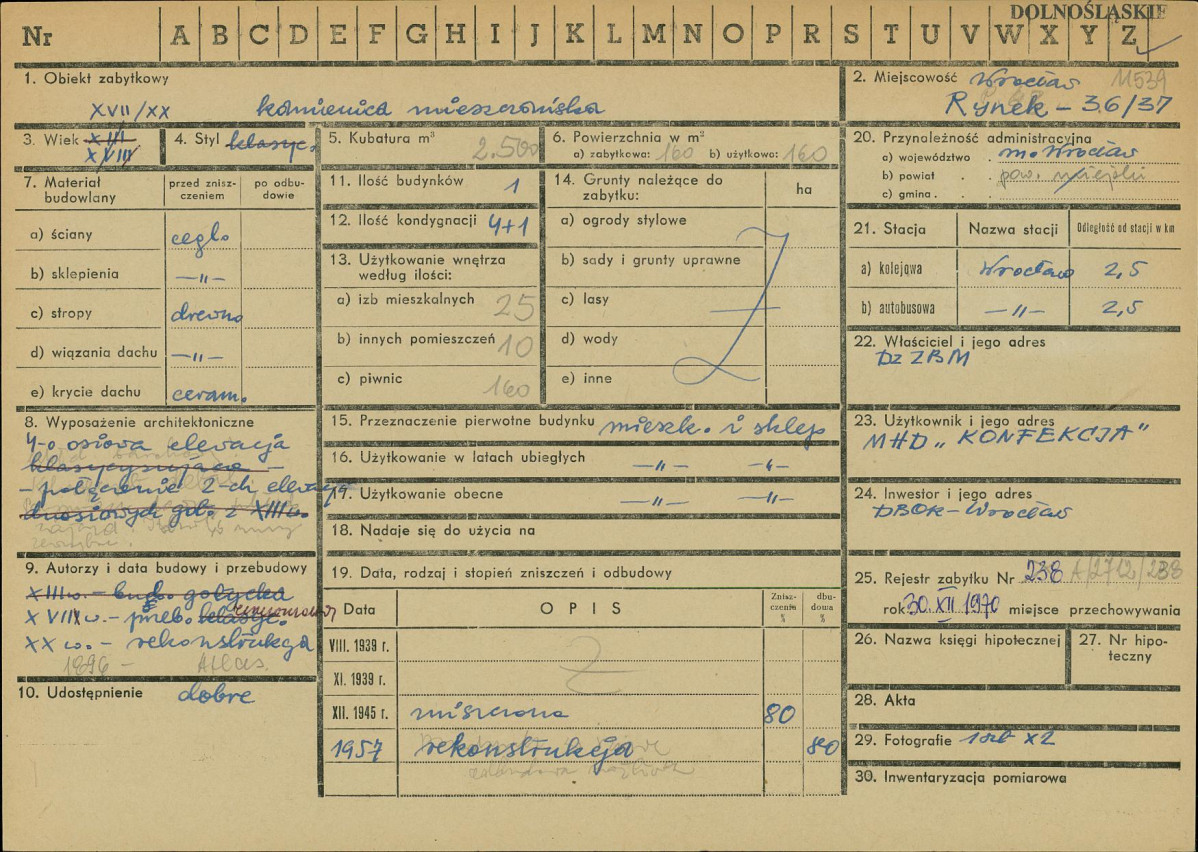 DOLNOŚLĄSKIE
Nr A B C D E F G H I J K L M N O P R S T U V W X Y Z
1. Obiekt zabytkowy
XVII/XX kamienica mieszczańska
2. Miejscowość Wrocław 11539
Rynek - 36/37
3. Wiek XIII
XVIII
4. Styl klasyc.
5. Kubatura m³ 2.500
6. Powierzchnia w m²
a) zabytkowa: 160 b) użytkowa: 160
7. Materiał budowlany
przed zniszczeniem
po odbudowie
a) ściany cegła
b) sklepienia -"-
c) stropy drewno
d) wiązania dachu -"-
e) krycie dachu ceram.
8. Wyposażenie architektoniczne
4-o osiowa elewacja
klasycyzująca -
- połączenie 2-ch elewacji
dwuosiowych got. z XIII w.
9. Autorzy i data budowy i przebudowy
XIII w. - bud. gotycka
XVIII w. - przeb. klasyc.
XX w. - rekonstrukcja
1896 - Atlas.
10. Udostępnienie dobre
11. Ilość budynków 1
12. Ilość kondygnacji 4+1
13. Użytkowanie wnętrza
według ilości:
a) izb mieszkalnych 25
b) innych pomieszczeń 10
c) piwnic 160
14. Grunty należące do
zabytku:
ha
a) ogrody stylowe
b) sady i grunty uprawne
c) lasy
d) wody
e) inne
15. Przeznaczenie pierwotne budynku mieszk. i sklep
16. Użytkowanie w latach ubiegłych -"- -"-
17. Użytkowanie obecne -"- -"-
18. Nadaje się do użycia na
19. Data, rodzaj i stopień zniszczeń i odbudowy
Data OPIS Zniszczenia % dbudowa %
VIII. 1939 r.
XI. 1939 r.
XII. 1945 r. niszczona 80
1957 rekonstrukcja 80
20. Przynależność administracyjna
a) województwo . m. Wrocław
b) powiat . . pow. miejski
c) gmina . .
21. Stacja Nazwa stacji Odległość od stacji w km
a) kolejowa Wrocław 2,5
b) autobusowa -"- 2,5
22. Właściciel i jego adres
DZ ZBM
23. Użytkownik i jego adres
MHD „KONFEKCJA"
24. Inwestor i jego adres
DBOR - Wrocław
25. Rejestr zabytku Nr 238 A/2712/238
rok 30 XII 1970 miejsce przechowywania
26. Nazwa księgi hipotecznej
27. Nr hipoteczny
28. Akta
29. Fotografie 1 szt x2
30. Inwentaryzacja pomiarowa